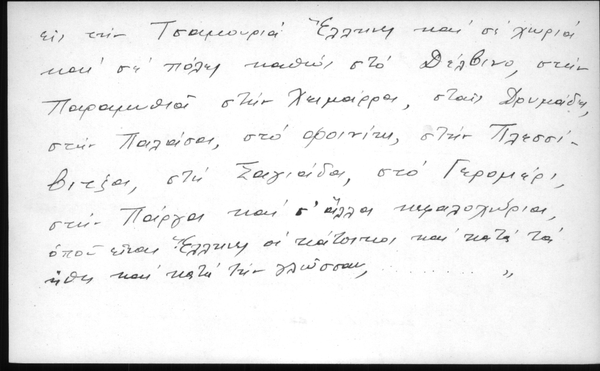 εις την Τσαμουριά Έλληνες και σε χωριά
και σε πόλεις καθώς στο Δέλβινο, στην
Παραμυθιά στην Χειμάρρα, στους Δρυμάδες,
στην Παλάσα, στο Φοινίκι, στην Πλεσσί-
βιτζα, στη Σαγιάδα, στο Γερομέρι,
στην Πάργα και σ' άλλα κεφαλοχώρια,
όπου είναι Έλληνες οι κάτοικοι και κατά τά
ήθη και κατά την γλώσσαν, .......... „